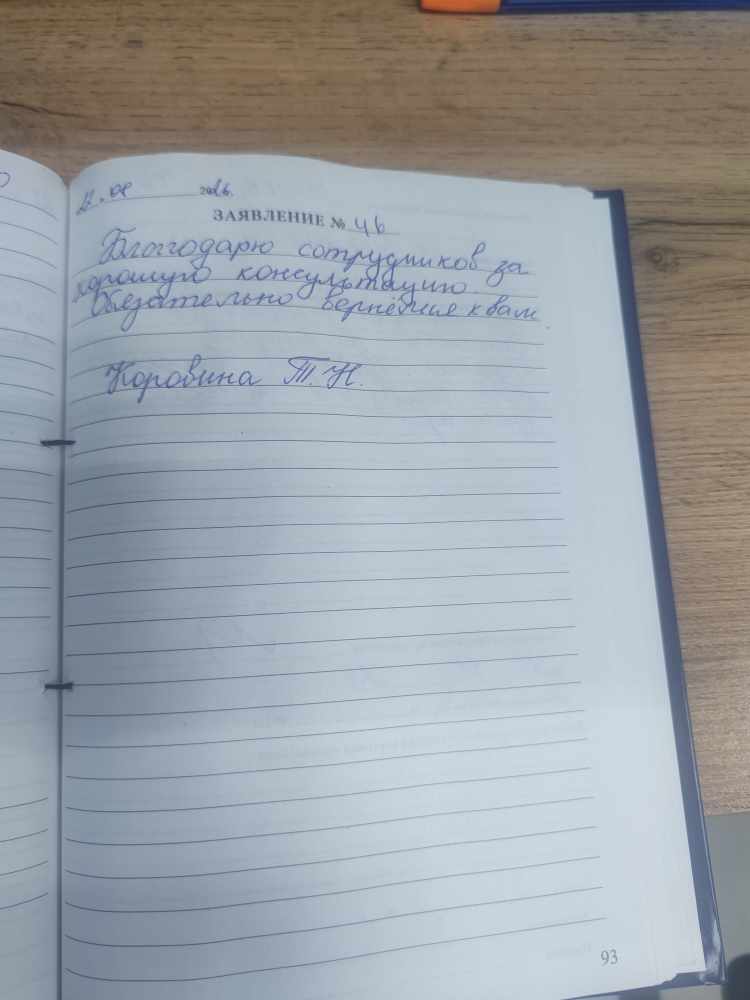 ЗАЯВЛЕНИЕ № 46
Благодарю сотрудников за
хорошую консультацию
Обязательно вернёмся к вам
Коровина Т. Н.
93